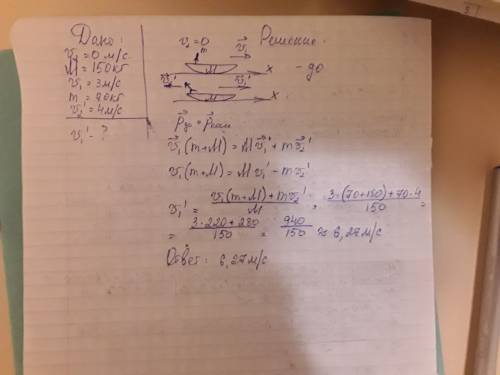 Дано:
v₂ = 0 м/с
M = 150 кг
v₁ = 3 м/с
m = 70 кг
v₂' = 4 м/с
v₁' - ?
Решение:
v₂ = 0 m v⃗₁
M x - до
v⃗₂' v⃗₁'
M x
p⃗до = p⃗после
v⃗₁(m+M) = M v⃗₁' + m v⃗₂'
v₁(m+M) = M v₁' - m v₂'
v₁' = (v₁(m+M) + m v₂')/M = (3·(70+150)+70·4)/150 =
= (3·220+280)/150 = 940/150 ≈ 6,27 м/с
Ответ: 6,27 м/с